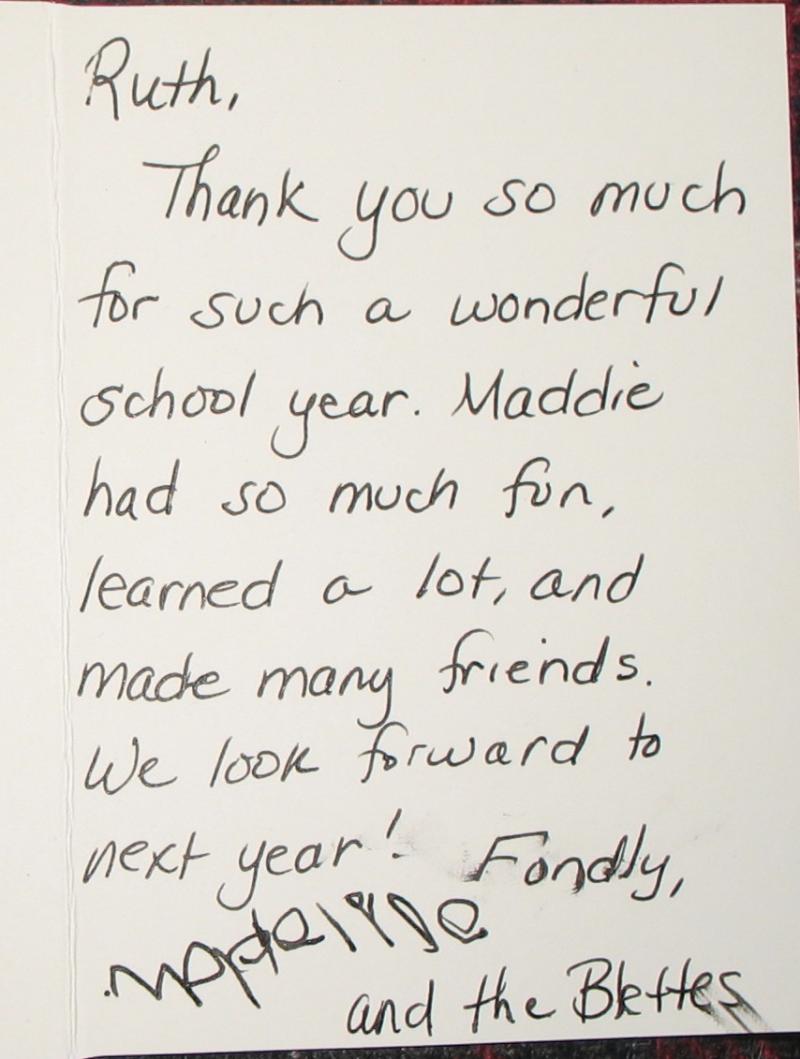 Ruth,
Thank you so much
for such a wonderful
school year. Maddie
had so much fun,
learned a lot, and
made many friends.
We look forward to
next year! Fondly,
Madeline
and the Blettes